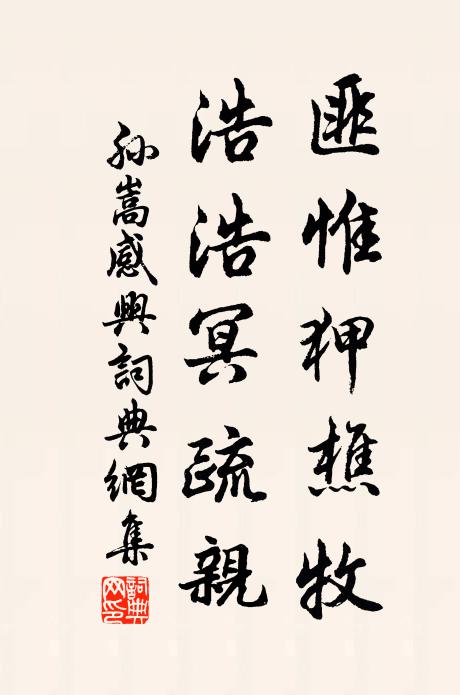 匪惟狎樵牧
浩浩冥疏親
孙嵩感興詞典網集
詞典網印